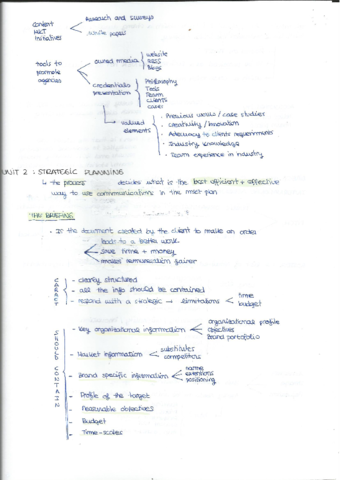 content
MKT
initiatives
Research and surveys
white papers
tools to
promote
agencies
owned media
website
RSSS
Blogs
credentials
presentation
Philosophy
Tools
Team
clients
cases
valued
elements
- Previous works / case studies
- Creativity / Innovation
- Adequacy to clients requirements
- Industry knowledge
- Team experience in industry
UNIT 2: STRATEGIC PLANNING
the process decides what is the best efficient + effective
way to use communications in the mkt plan
THE BRIEFING
- Is the document created by the client to make an order
leads to a better work
save time + money
makes remuneration fairer
- clearly structured
- all the info should be contained
- respond with a strategic → limitations
time
budget
SHOULD CONTAIN
- Key organisational information
organisational profile
objectives
Brand portafolio
- Market information
substitutes
competitors
- Brand specific information
name
extensions
positioning
- Profile of the target
- Measurable objectives
- Budget
- Time-scales